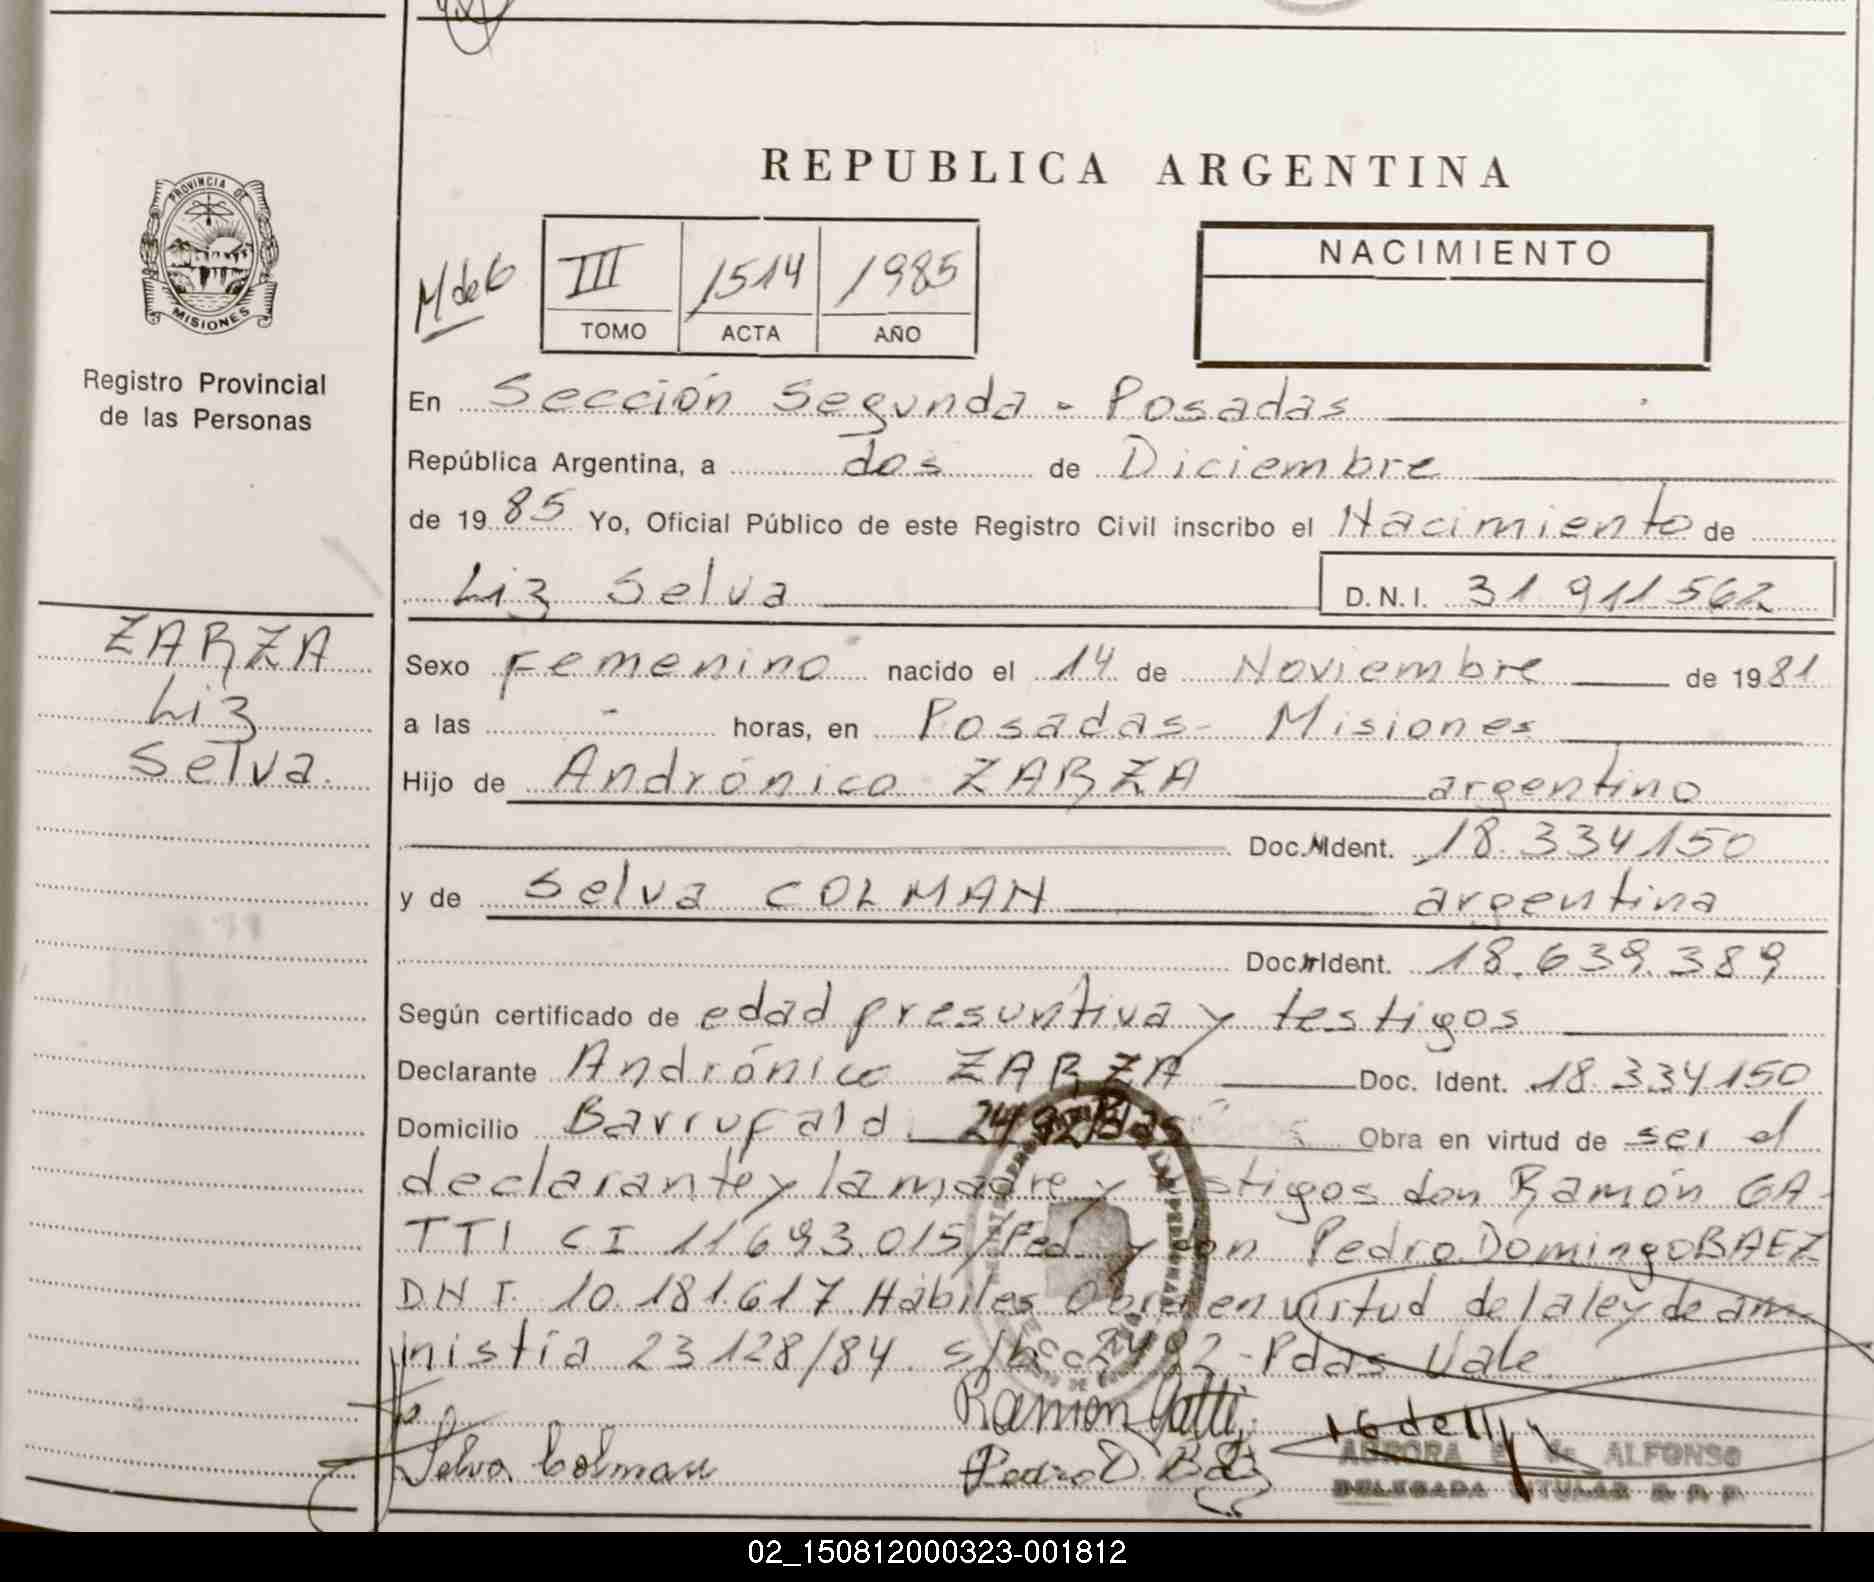 REPUBLICA ARGENTINA
PROVINCIA DE
MISIONES
Registro Provincial
de las Personas
M de G
III 1514 1985
TOMO ACTA AÑO
NACIMIENTO
En Sección Segunda - Posadas
República Argentina, a dos de Diciembre
de 1985 Yo, Oficial Público de este Registro Civil inscribo el Nacimiento de
Liz Selva D.N.I. 31 911 562
ZARZA
Liz
Selva.
Sexo Femenino nacido el 14 de Noviembre de 1981
a las - horas, en Posadas - Misiones
Hijo de Andrónico ZARZA argentino
Doc. Ident. 18.334150
y de Selva COLMAN argentina
Doc. Ident. 18.639.389
Según certificado de edad presuntiva y testigos
Declarante Andrónico ZARZA Doc. Ident. 18.334150
Domicilio Barrufald 2492 Pdas Obra en virtud de ser el
declarante y la madre y testigos don Ramón GA-
TTI CI 11693.015/Fed y don Pedro Domingo BAEZ
DNI. 10.181.617. Hábiles Obra en virtud de la ley de am
nistía 23128/84. s/b 2492 - Pdas Vale
Ramon Gatti
Selva Colman
Pedro D. Baez
AURORA de ALFONSO
DELEGADA TITULAR R. P. P.
02_150812000323-001812